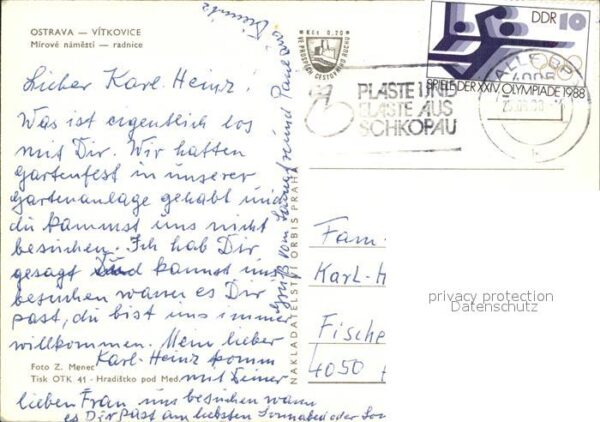 OSTRAVA — VÍTKOVICE
Mírové náměstí — radnice
Lieber Karl-Heinz!
Was ist eigentlich los
mit Dir. Wir hatten
Gartenfest in unserer
Gartenanlage gehabt und
du kammst uns nicht
besuchen. Ich hab Dir
gesagt Du kannst uns
besuchen wann es Dir
past, du bist uns immer
willkommen. Mein lieber
Karl-Heinz komm
mit Deiner
lieben Frau uns besuchen wann
es Dir past am liebsten Sonnabend oder Son
Foto Z. Menec
Tisk OTK 41 - Hradištko pod Med.
Gruß vom und
NAKLADATELSTVÍ ORBIS PRAHA
Kčs 0,20
VE PROSPĚCH CESTOVNÍHO RUCHU
PLASTE UND
ELASTE AUS
SCHKOPAU
DDR 10
SPIELE DER XXIV. OLYMPIADE 1988
HALLE
Fam.
Karl-H
Fische
4050
privacy protection
Datenschutz